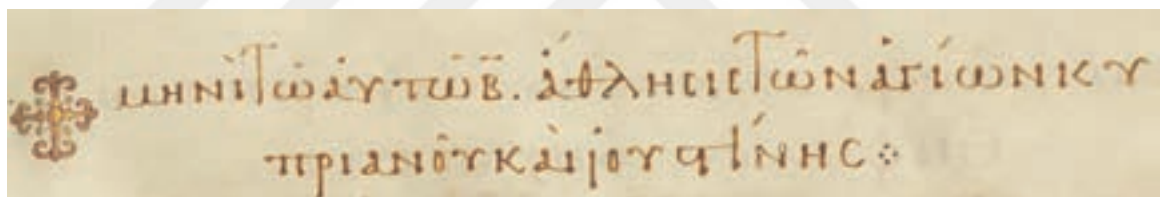 μηνὶ τῶ ἀυτῶ β̄. ἄθλησις τῶν ἁγίων κυ
πριανοῦ καὶ ϊουστίνης